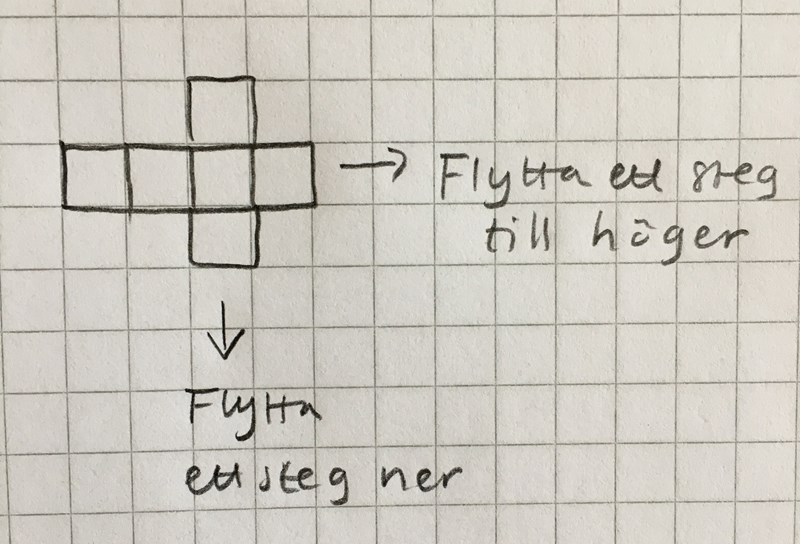 Flytta ett steg
till höger
Flytta
ett steg ner